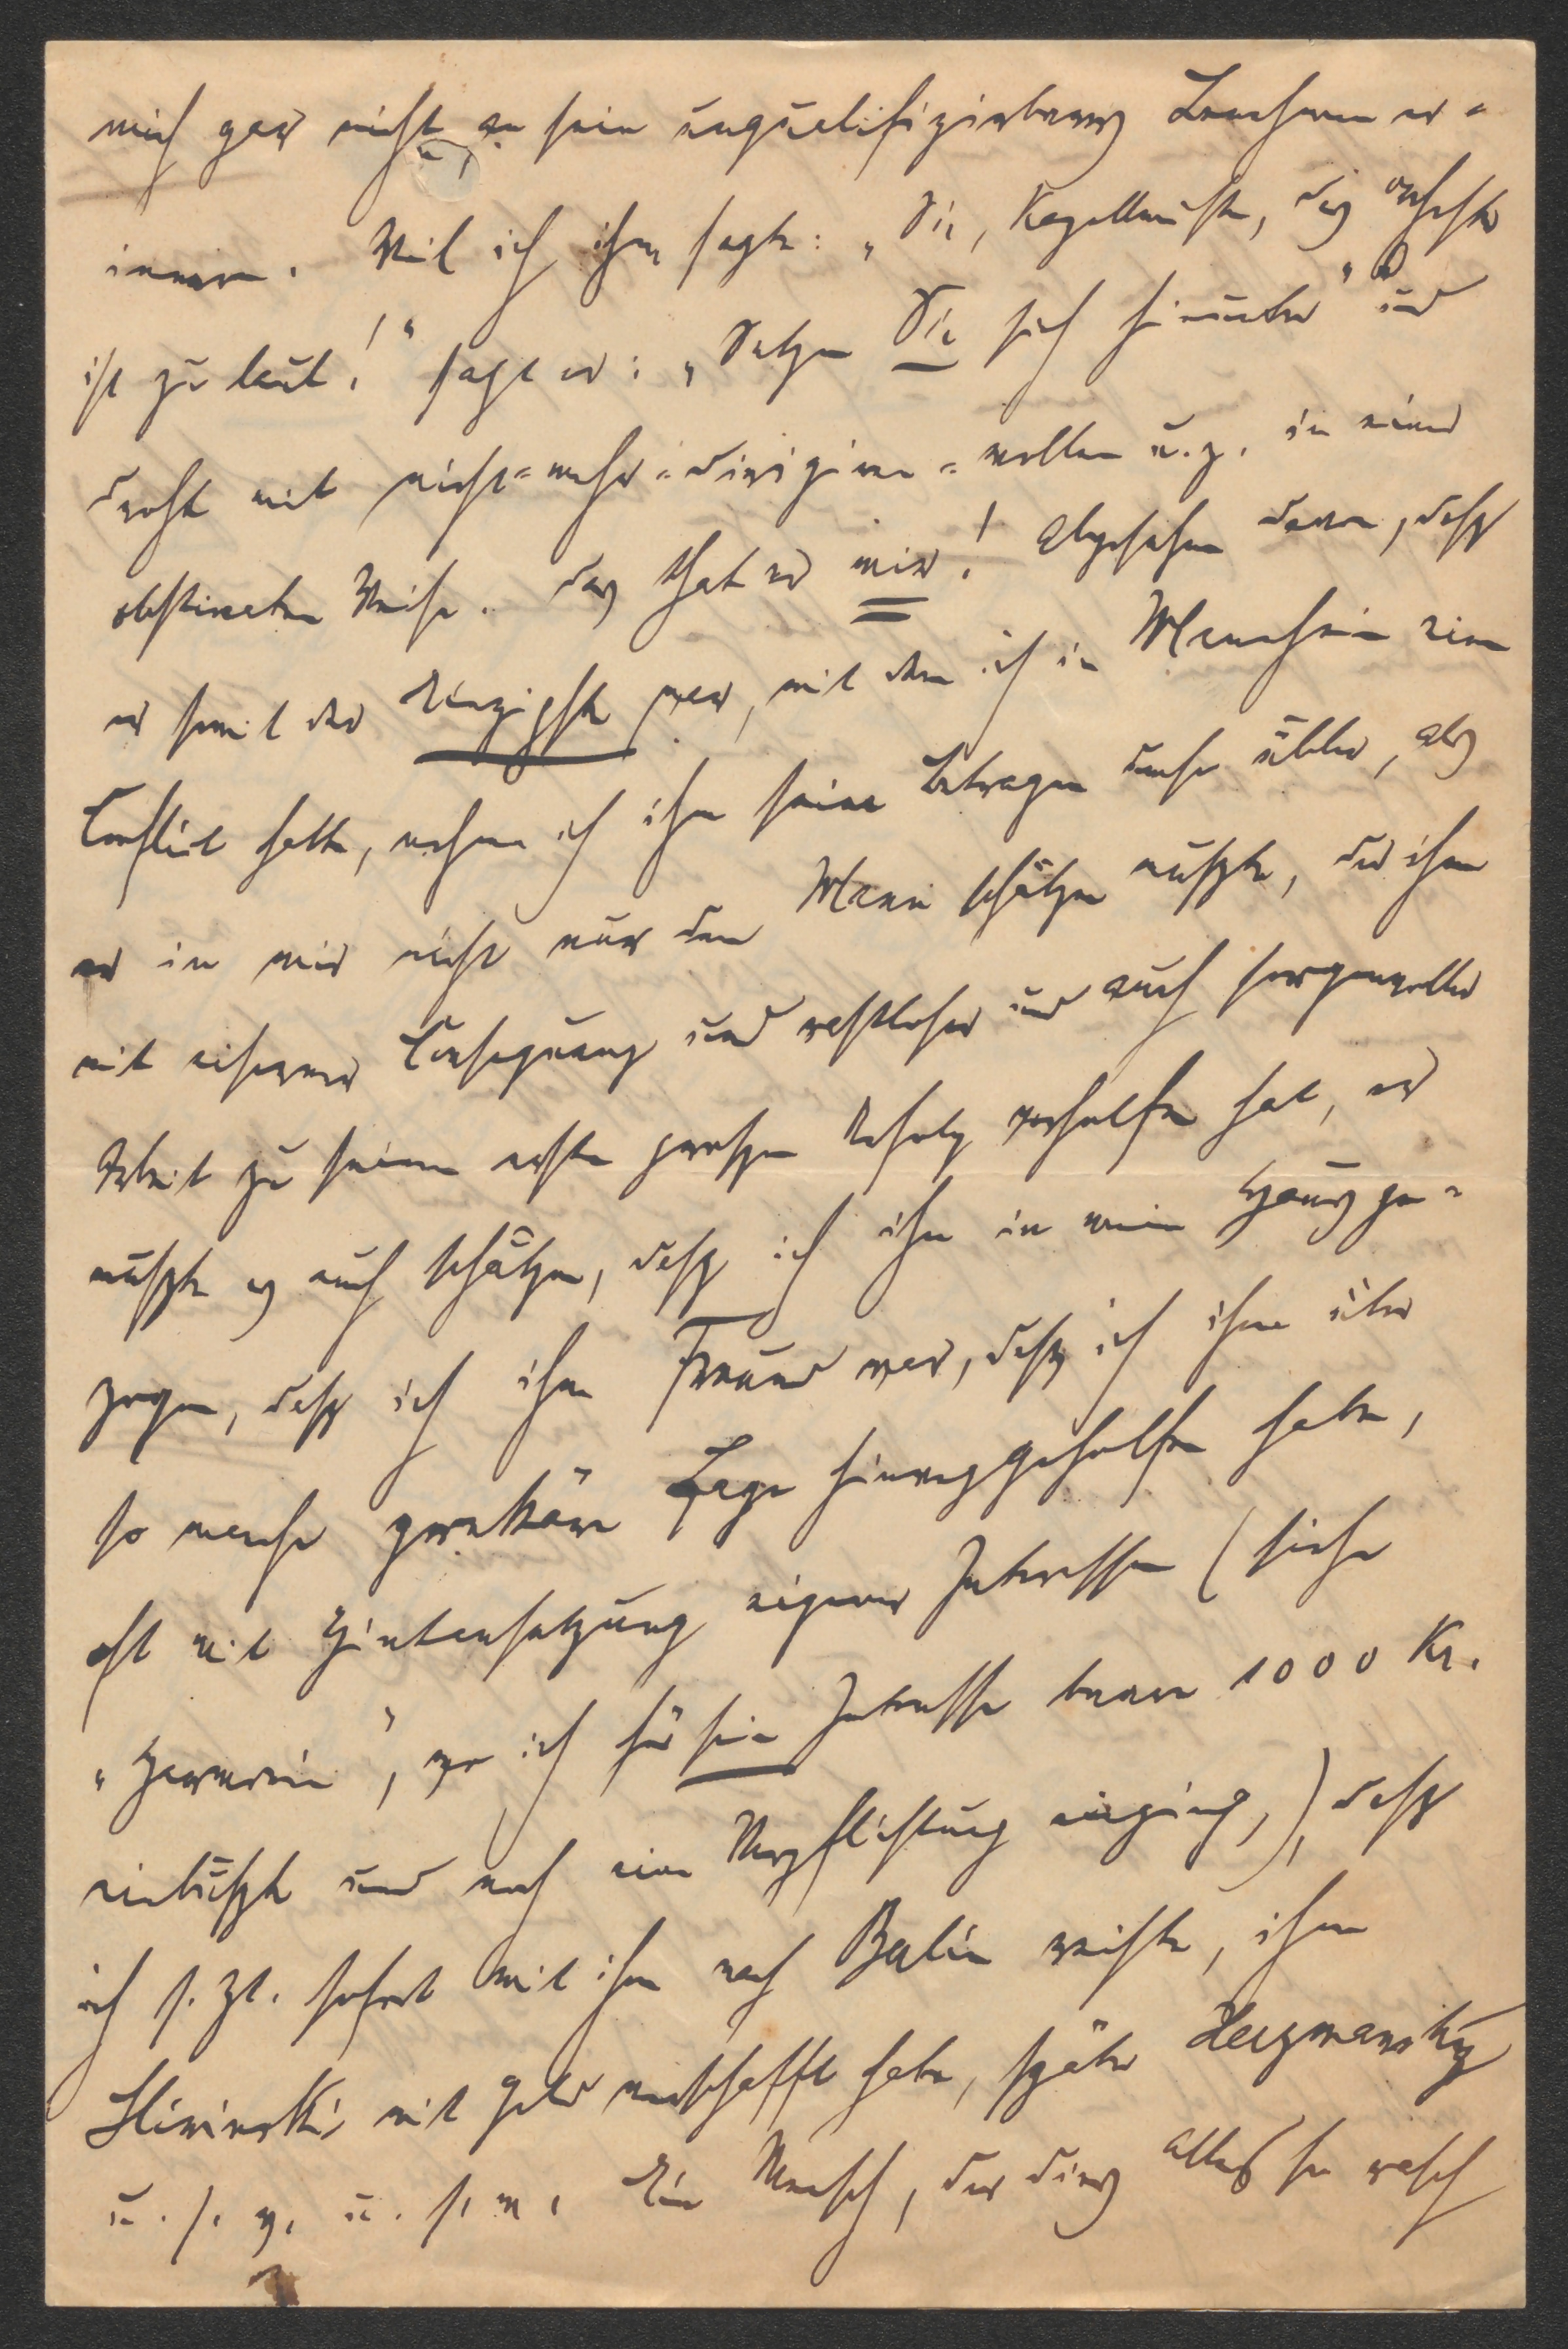 mich gar nicht an sein unqualifizirbares Benehmen er-
innern. Weil ich ihm sagte: „Sie, Kapellmeister, das Orchester
ist zu laut!“ sagt er: „Setzen Sie sich hinunter“ und
droht mit nicht-mehr-dirigiren-wollen u. z. in einer
obstinaten Weise. Das that er mir! Abgesehen davon, dass
er somit der Einzigste war, mit dem ich in Mannheim einen
Conflict hatte, nehme ich ihm seine Betragen umso übler, als
er in mir nicht nur den Mann schätzen musste, der ihm
mit eiserner Consequenz und rastloser und auch sorgenvoller
Arbeit zu seinem ersten grossen Erfolg verholfen hat, er
musste es auch schätzen, dass ich ihn in mein Haus ge-
zogen, dass ich ihm Freund war, dass ich ihm über
so manche prekäre Lage hinweggeholfen habe,
oft mit Hintansetzung eigener Interessen (siehe
„Harmonie“, wo ich für sein Interesse baare 1000 Kr.
einbüsste und noch eine Verpflichtung einging,) dass
ich s. Zt. sofort mit ihm nach Berlin reiste, ihm
Sliwinski mit Geld verschafft habe, später Herzmansky
u. s. w. u. s. w. Ein Mensch, der dies alles so rasch